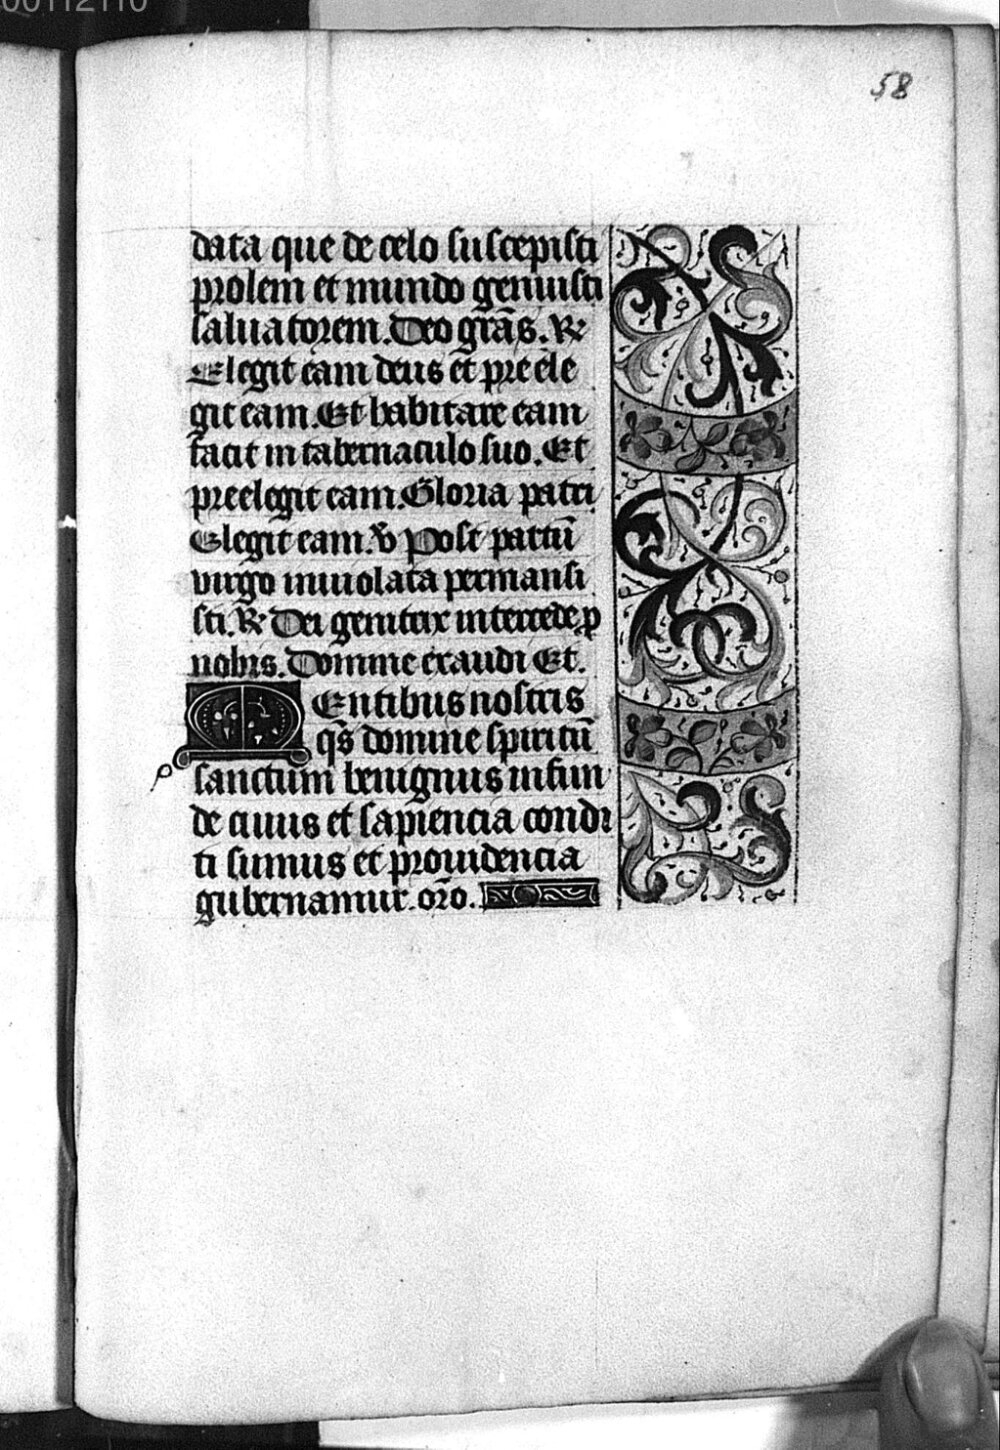 00112110
58
data que de celo suscepisti
prolem et mundo genuisti
saluatorem. Deo grās. R
Elegit eam deus et pre ele
git eam. Et habitare eam
facit in tabernaculo suo. Et
preelegit eam. Gloria patri
Elegit eam. v̄ Post partū
virgo inuiolata permansi
sti. R Dei genitrix intercede p
nobis. Domine exaudi Et.
Mentibus nostris
qs̄ domine spiritū
sanctum benignus infun
de cuius et sapiencia condi
ti sumus et prouidencia
gubernamur. orō.